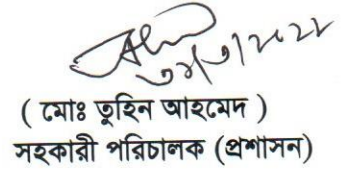 ( মোঃ তুহিন আহমেদ )
সহকারী পরিচালক (প্রশাসন)